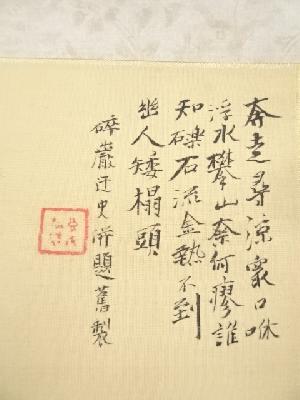 奔走尋涼衆口咻
浮水攀山奈何瘳誰
知礫石流金熱不到
幽人矮榻頭
碎巖迂史併題舊製